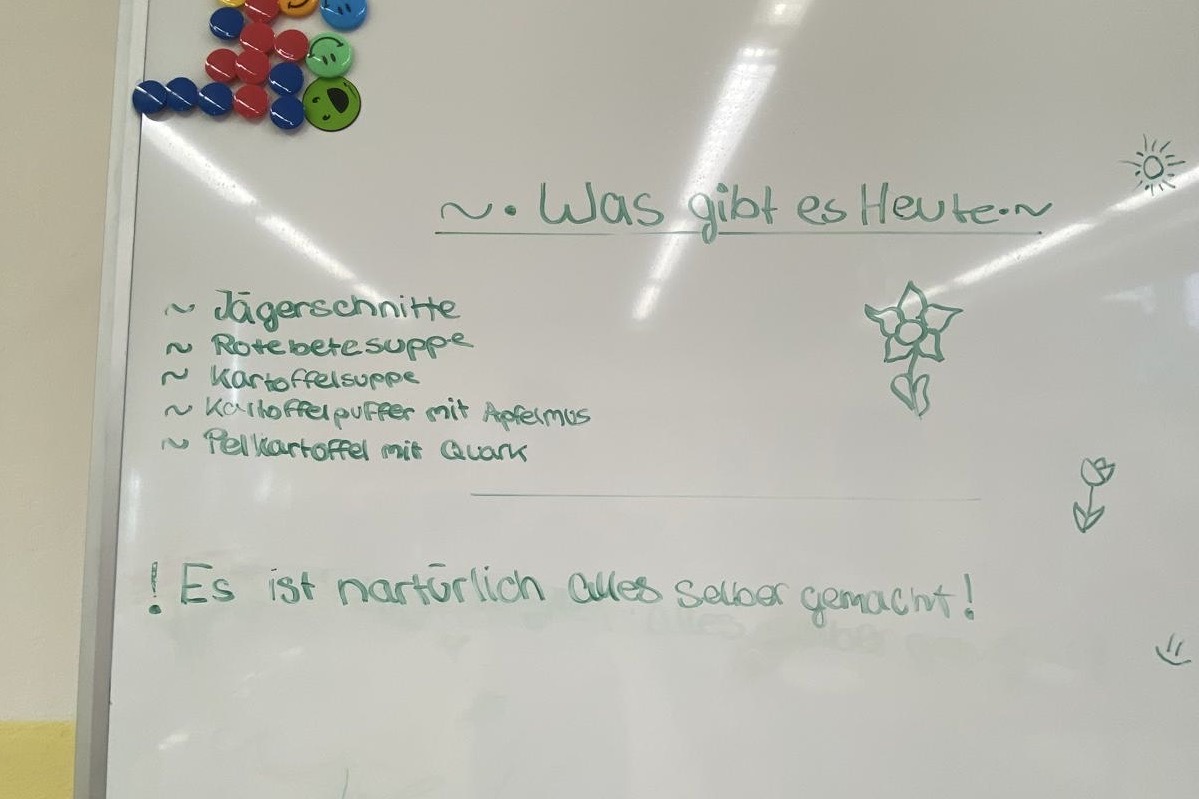 ~. Was gibt es Heute.~
~ Jägerschnitte
~ Rotebetesuppe
~ Kartoffelsuppe
~ Kartoffelpuffer mit Apfelmus
~ Pellkartoffel mit Quark
! Es ist nartürlich alles selber gemacht!